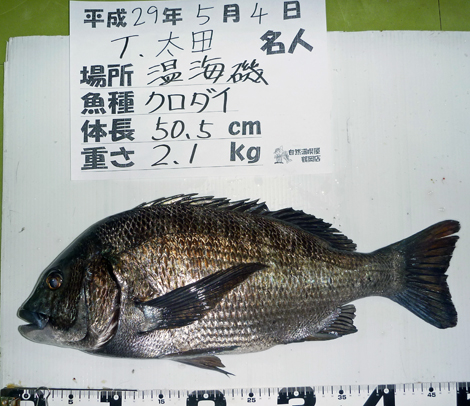 平成29年5月4日
T.太田 名人
場所 温海磯
魚種 クロダイ
体長 50.5 cm
重さ 2.1 kg
鶴岡店
5 10 15 20 25 30 35 40 45